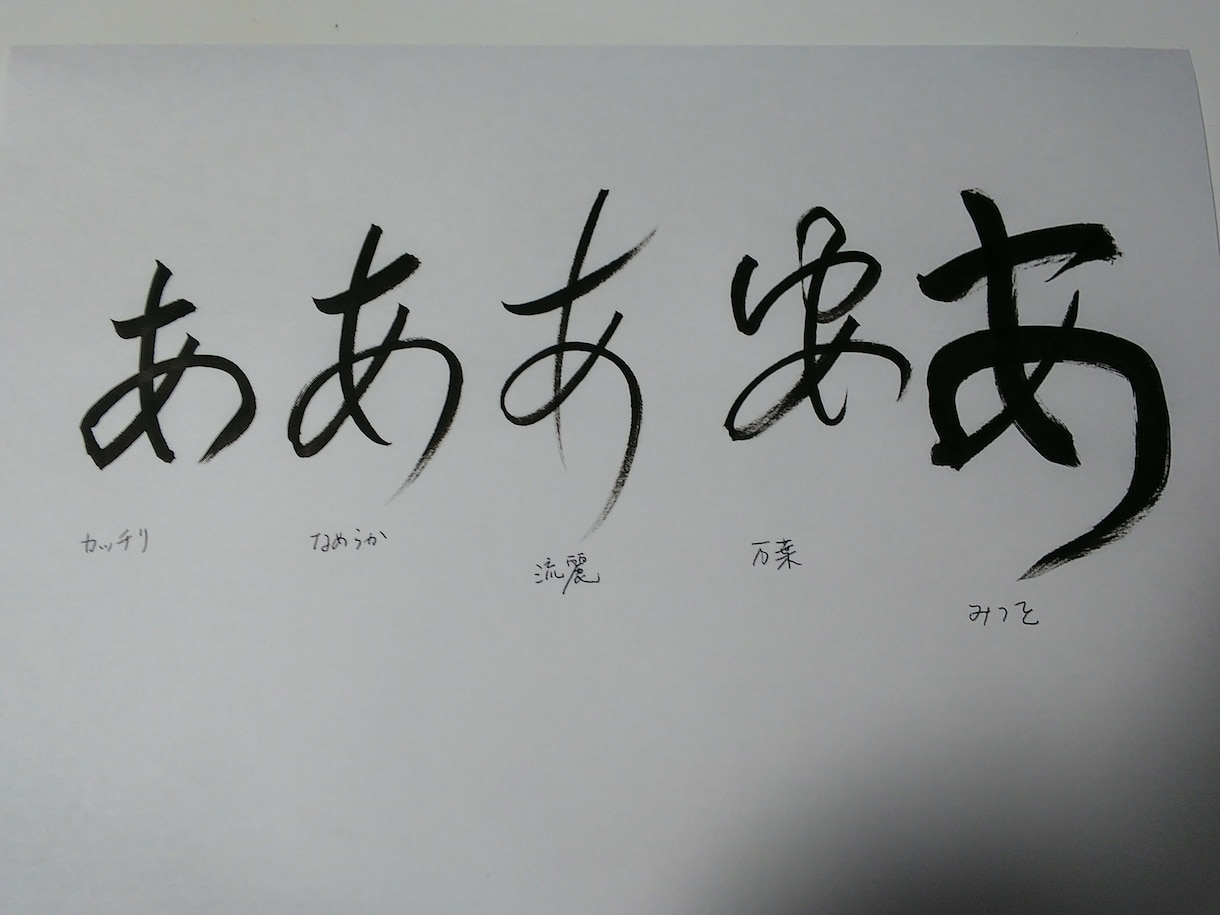 あ あ あ 安 あ
カッチリ
なめらか
流麗
万葉
みつを